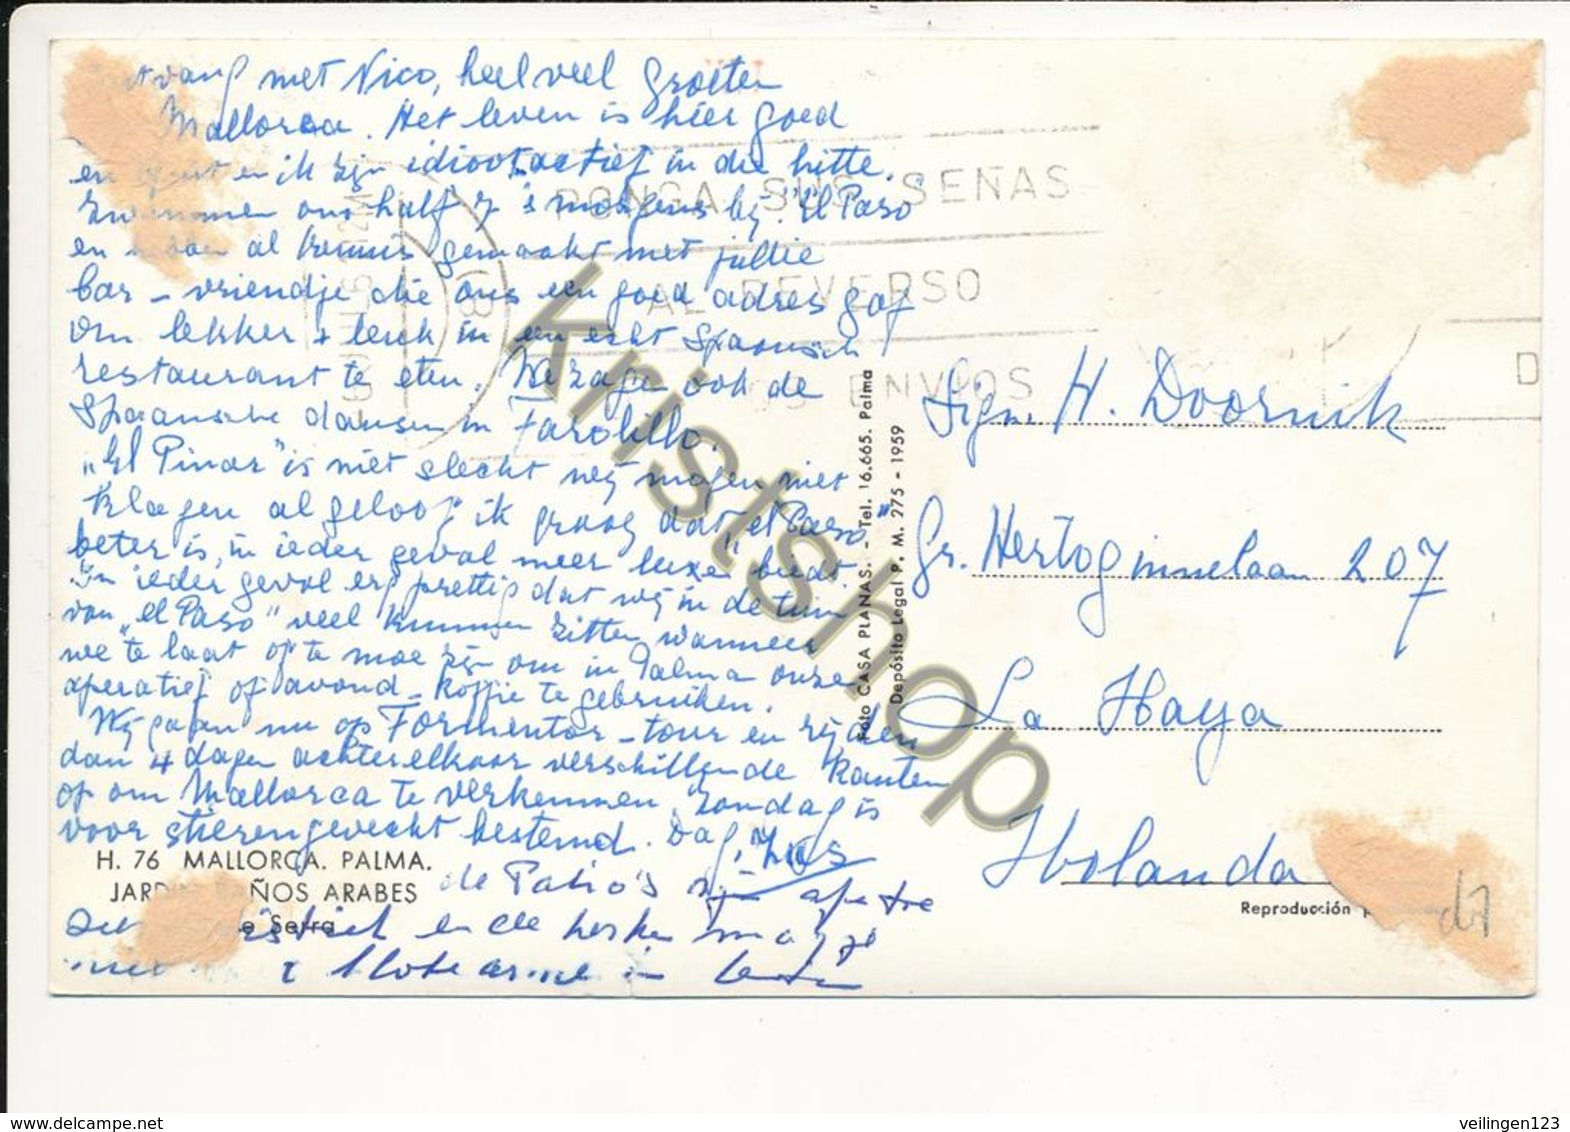 met Nico, heel veel groeten
Mallorca. Het leven is hier goed
en en ik zijn idioot actief in die hitte.
zwemmen ons half 7 's morgens bij "El Paso"
en al kennis gemaakt met jullie
bar-vriendje die ons een goed adres gaf
om lekker + leuk in een echt Spaansch
restaurant te eten. We zagen ook de
Spaansche dansen in Farolillo.
"El Pinar" is niet slecht wij mogen niet
klagen al geloof ik graag dat "el Paso"
beter is, in ieder geval meer luxe biedt.
In ieder geval erg prettig dat wij in de tuin
van "el Paso" veel kunnen zitten wanneer
we te laat of te moe zijn om in Palma onze
aperatief of avond-koffie te gebruiken.
Wij gaan nu op Formentor-tour en rijden
dan 4 dagen achterelkaar verschillende kanten
op om Mallorca te verkennen, Zondag is
voor stierengevecht bestemd. Dag,
de Patio's zijn
en de kerken
in
H. 76 MALLORCA. PALMA.
JARDIN BAÑOS ARABES
e Serra
Foto CASA PLANAS. - Tel. 16.665. Palma
Depósito Legal P. M. 275 - 1959
PONGA SUS SEÑAS
AL REVERSO
ENVIOS
D
Sign. H. Doornik
Gr. Hertoginnelaan 207
La Haya
Holanda
Reproducción
kristshop
delcampe.net
veilingen123